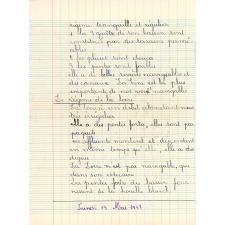 régime tranquille et régulier
1 les 3 quarts de son bassin sont
constitués par des terrains perméables
2 les pluies sont
3 les pentes sont faibles
elle a de belles rivières navigables et
des canaux. La Seine est la plus
importante de nos voies navigables
Le régime de la Loire
La Loire a un débit abondant mais
très irrégulier
elle a des pentes fortes, elle sont par
paquets
ses affluents montent et descendent
en même temps qu'elle, elle a des
digues
La Loire n'est pas navigable, que
dans son estuaire
Les pentes fortes du bassin four-
nissent de la houille blanche
Lundi 14 Mai 1951